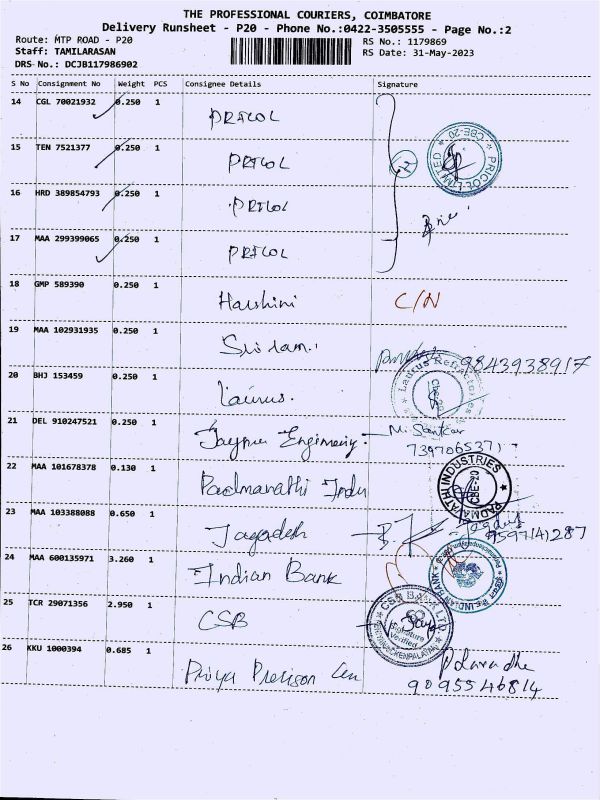 THE PROFESSIONAL COURIERS, COIMBATORE
Delivery Runsheet - P20 - Phone No.:0422-3505555 - Page No.:2
Route: MTP ROAD - P20
RS No.: 1179869
Staff: TAMILARASAN
RS Date: 31-May-2023
DRS No.: DCJB117986902
S No Consignment No Weight PCS Consignee Details Signature
14 CGL 70021932 0.250 1 PRICOL
15 TEN 7521377 0.250 1 PRICOL
PRICOL LIMITED * CBE-20 *
16 HRD 389854793 0.250 1 PRICOL
17 MAA 299399065 0.250 1 PRICOL
18 GMP 589390 0.250 1 Harshini C/N
19 MAA 102931935 0.250 1 Sriram. 9843938917
20 BHJ 153459 0.250 1 Laurus.
Laurus Refractories
21 DEL 910247521 0.250 1 Jaypur Engineering - M. Sankar
7397065371
22 MAA 101678378 0.130 1 Padmavathi Indu
PADMAVATHI INDUSTRIES CBE-20
23 MAA 103388088 0.650 1 Jagadesh
24 MAA 600135971 3.260 1 Indian Bank
INDIAN BANK
25 TCR 29071356 2.950 1 CSB
CSB BANK LTD.
Signature Verified
26 KKU 1000394 0.685 1 Priya Precison Cen
9095546814